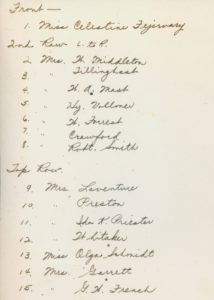 Front —
1. Miss Celestine Fejervary
2nd Row L. to R.
2. Mrs. W. Middleton
3. " Tillinghast
4. " W. A. Mast
5. " Hy. Vollmer
6. " W. Forrest
7. " Crawford
8. " Robt. Smith
Top Row.
9. Mrs Laventure
10. " Preston
11. " Ida K. Priester
12. " Whitaker
13. Miss Olga Schmidt
14. Mrs. Garrett
15. " G. W. French